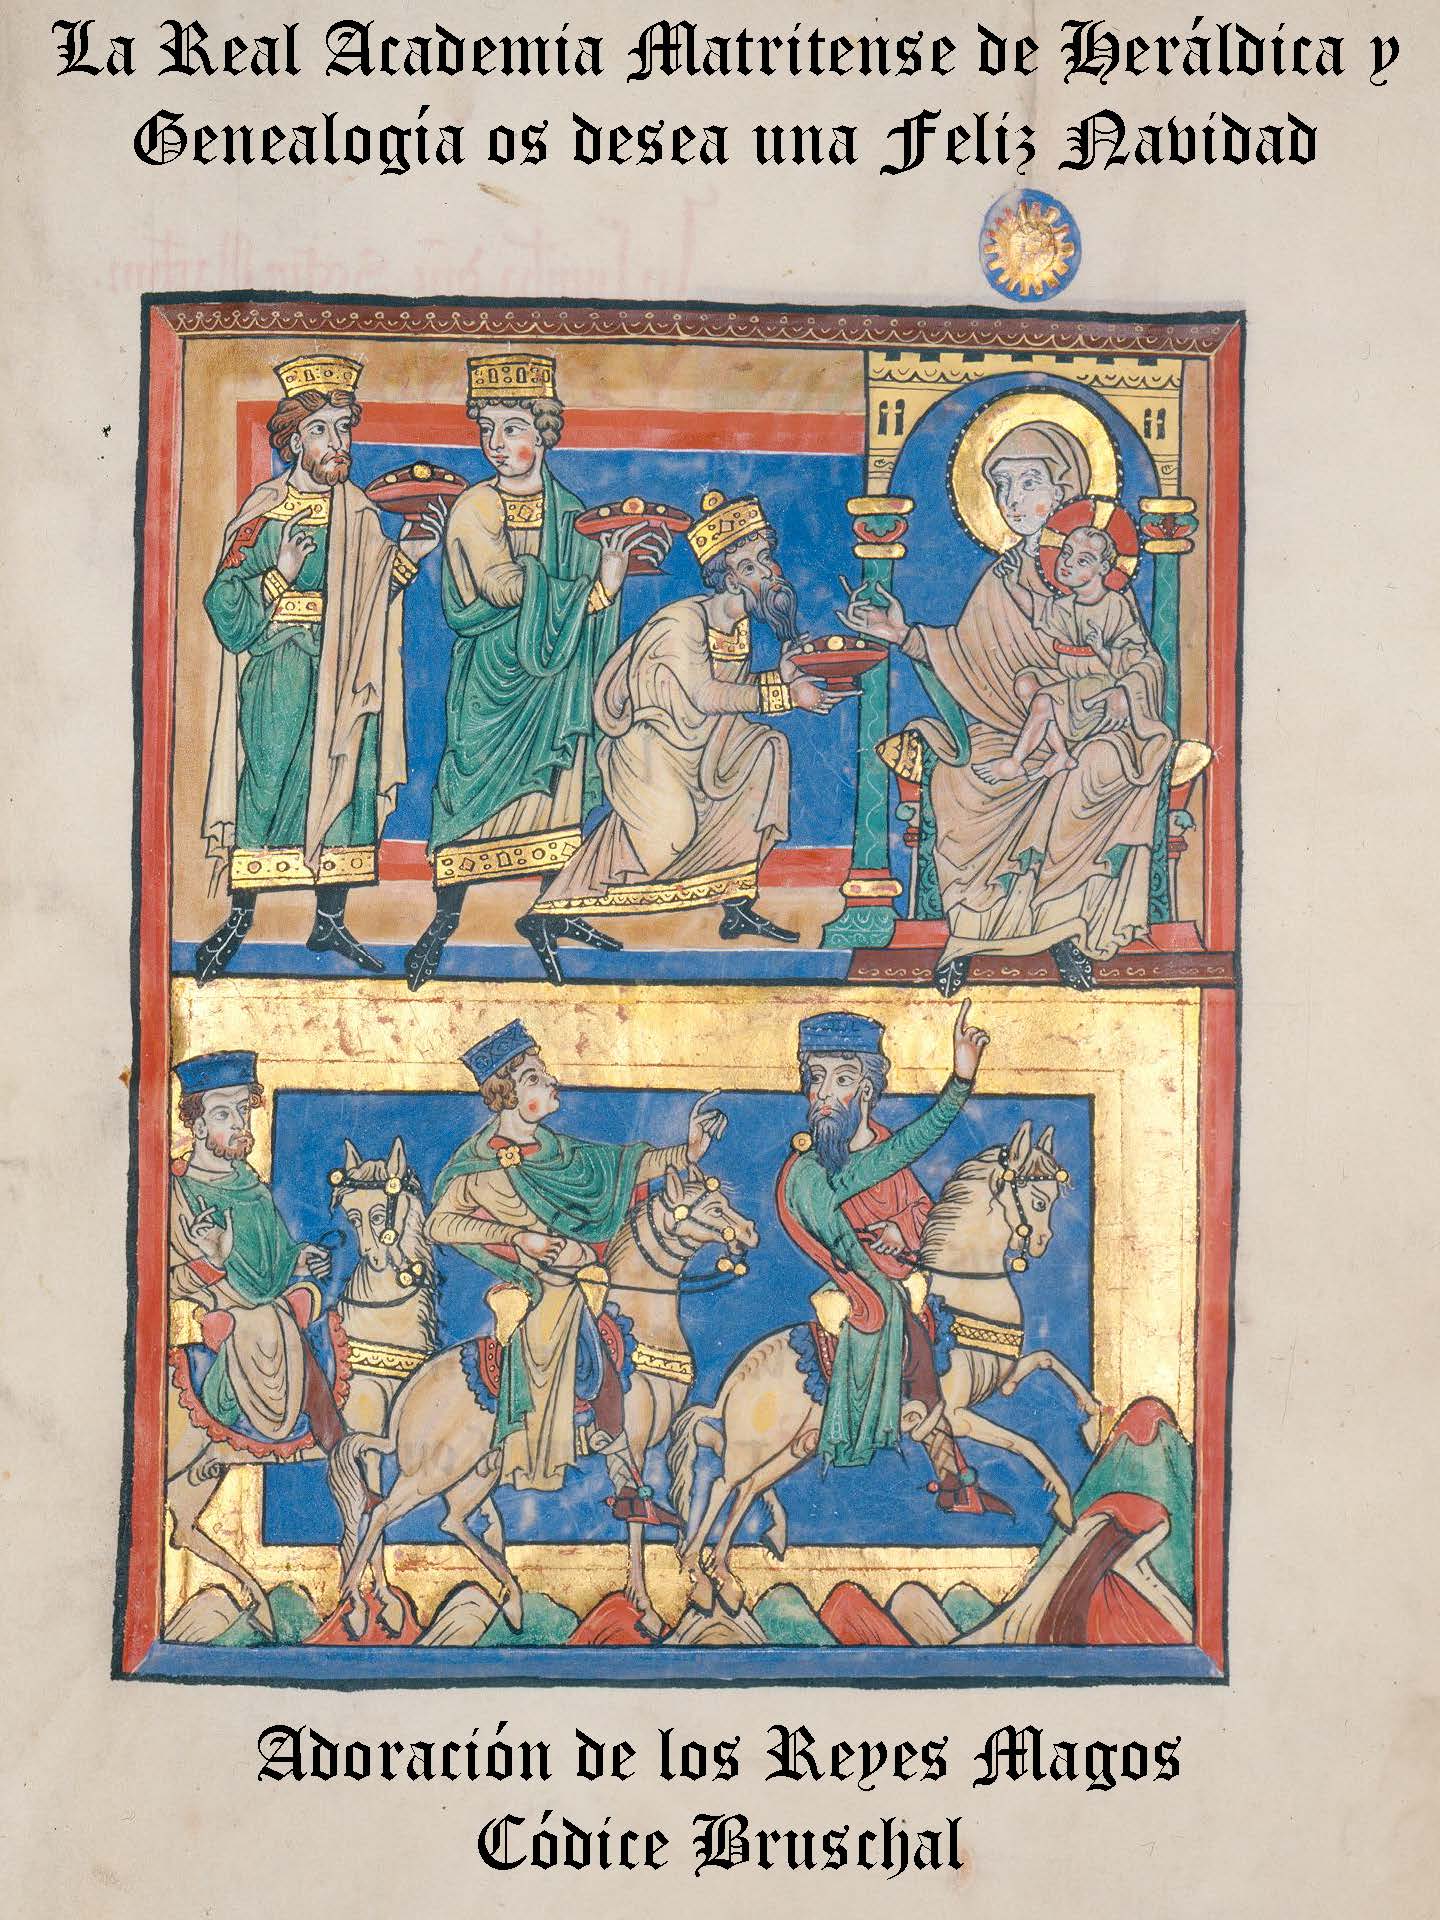 La Real Academia Matritense de Heráldica y
Genealogía os desea una Feliz Navidad
Adoración de los Reyes Magos
Códice Bruschal